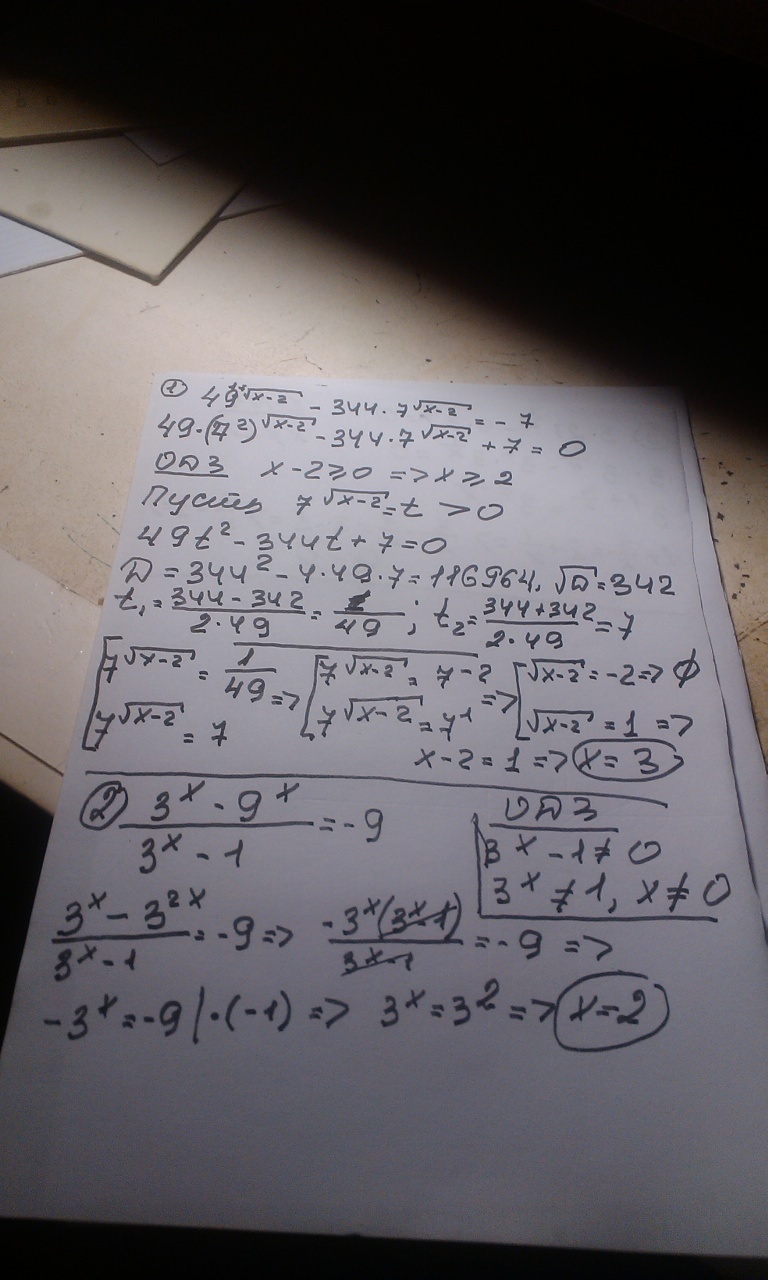 ① 49^(1+√(x-2)) - 344·7^√(x-2) = -7
49·(7²)^√(x-2) - 344·7^√(x-2) + 7 = 0
ОДЗ x-2≥0 => x≥2
Пусть 7^√(x-2) = t > 0
49t² - 344t + 7 = 0
D = 344² - 4·49·7 = 116964, √D = 342
t₁ = (344-342)/(2·49) = 1/49; t₂ = (344+342)/(2·49) = 7
[7^√(x-2) = 1/49 => [7^√(x-2) = 7^-2 => [√(x-2) = -2 => ∅
7^√(x-2) = 7 7^√(x-2) = 7¹ √(x-2) = 1 =>
x-2 = 1 => x = 3
② (3^x - 9^x)/(3^x - 1) = -9
ОДЗ
3^x - 1 ≠ 0
3^x ≠ 1, x ≠ 0
(3^x - 3^2x)/(3^x - 1) = -9 => (-3^x(3^x-1))/(3^x-1) = -9 =>
-3^x = -9 |·(-1) => 3^x = 3² => x = 2